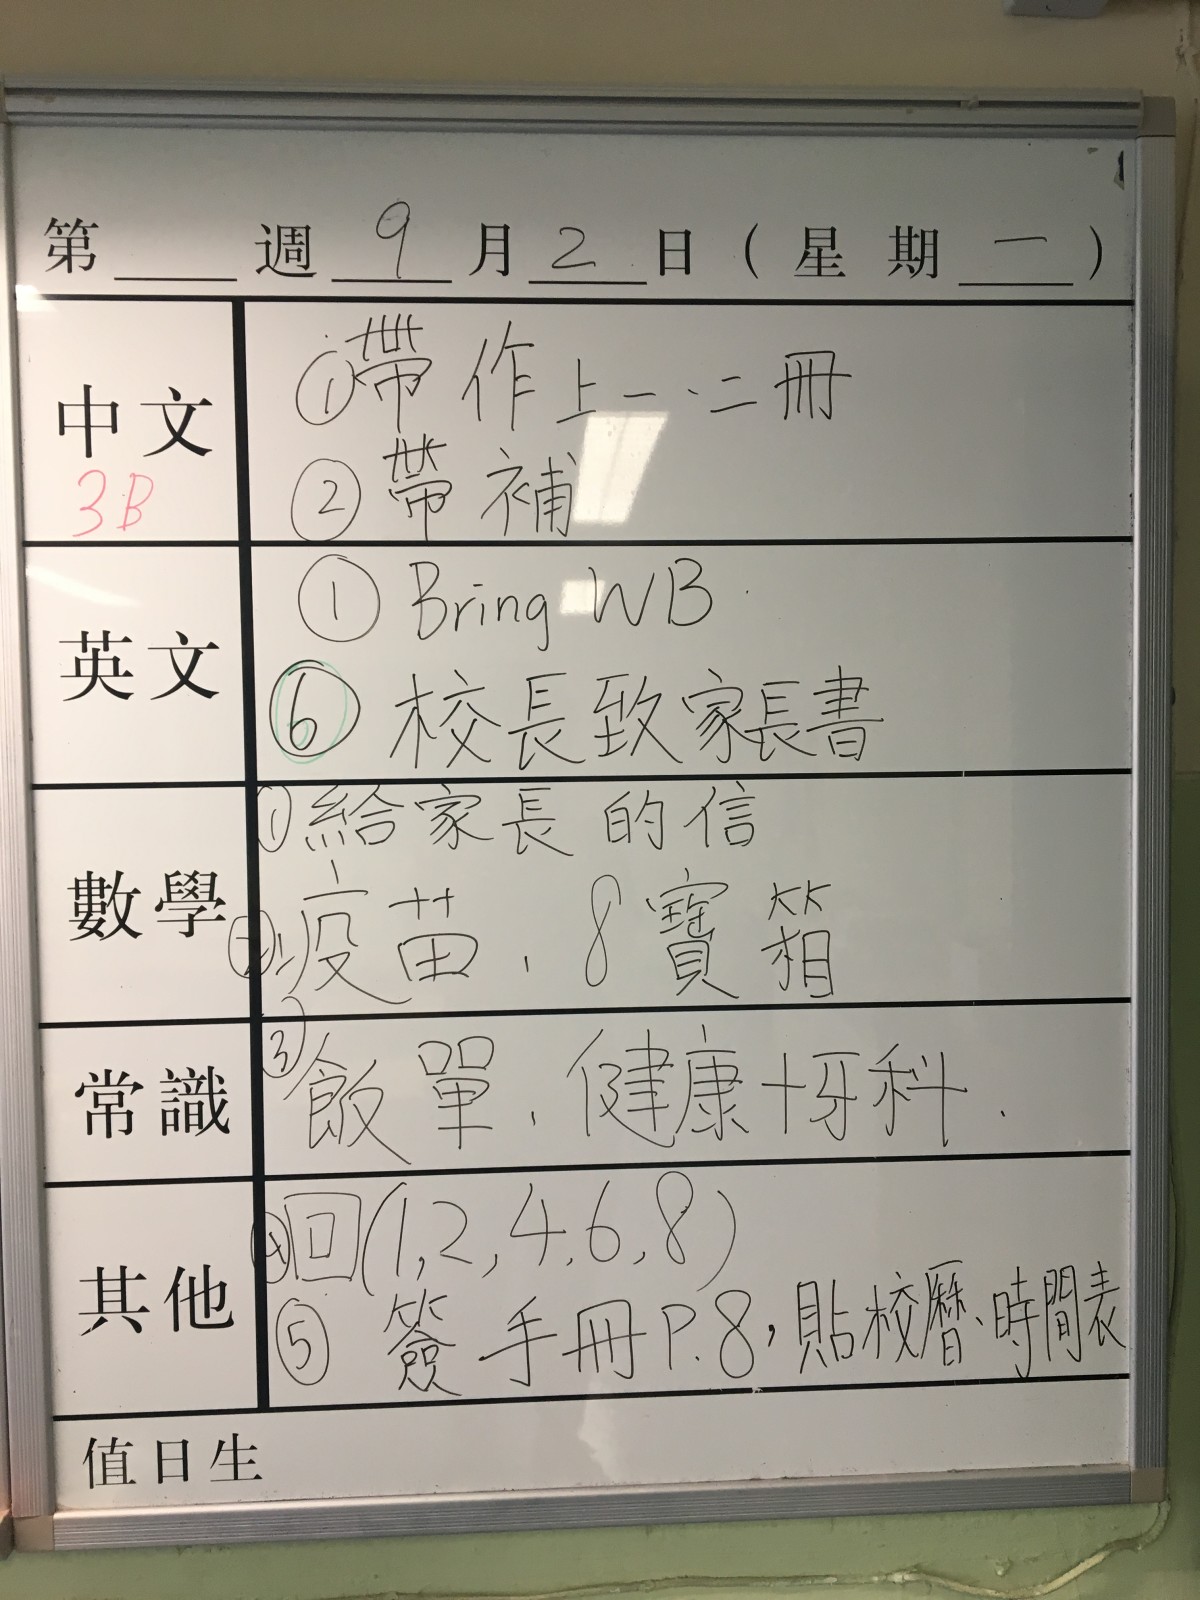 第 週 9 月 2 日 ( 星 期 一 )
中文
3B
① 帶 作 上 一 、二 冊
② 帶 補
英文
① Bring WB
⑥ 校長致家長書
數學
① 給家長 的 信
② 疫苗 、 8 寶 箱
常識
③ 飯單 、 健康 + 牙科 .
其他
④ 回 (1,2,4,6,8)
⑤ 簽 手 冊 P.8 , 貼校曆、時間表
值日生